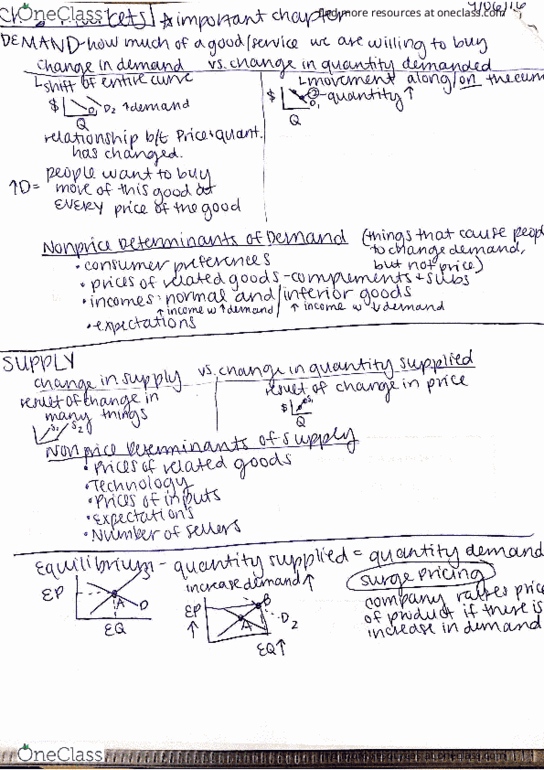 OneClass
find more resources at oneclass.com
☆important chapter
DEMAND-how much of a good/service we are willing to buy
change in demand vs. change in quantity demanded
↳shift of entire curve
↳movement along/on the curve
$ D2 ↑demand
Q
$ quantity↑
Q
relationship b/t Price+quant.
has changed.
↑D= people want to buy
more of this good at
EVERY price of the good
Nonprice Determinants of Demand (things that cause peop
to change demand,
but not price)
•consumer preferences
•prices of related goods-complements+subs
•incomes: normal and/inferior goods
↑income w ↑demand/ ↑ income w ↓demand
•expectations
SUPPLY
change in supply vs. change in quantity supplied
result of change in
many things
S1 S2
result of change in price
$ S1
Q
Nonprice Determinants of supply
•Prices of related goods
•Technology
•Prices of inputs
•Expectations
•Number of sellers
Equilibrium - quantity supplied = quantity demand
EP A D
EQ
increase demand↑
EP ↑ A B D2
EQ↑
surge pricing
company raises price
of product if there is
increase in demand
OneClass
find more resources at oneclass.com